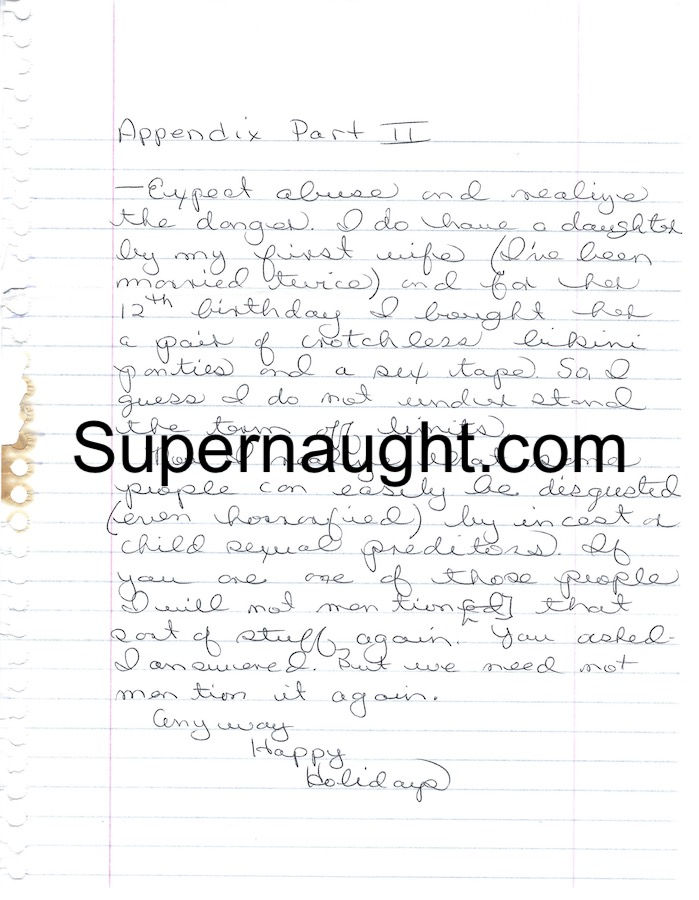 Appendix Part II
—Expect abuse and realize
the danger. I do have a daughter
by my first wife (I've been
married twice) and for her
12th birthday I bought her
a pair of crotchless bikini
panties and a sex tape. So, I
guess I do not under stand
the term off limits
Supernaught.com
people can easily be disgusted
(even horrorfied) by incest or
child sexual preditors. If
you are one of those people
I will not men tion[ed] that
sort of stuff, again. You asked-
I answered. But we need not
men tion it again.
Any way
Happy
Holidays